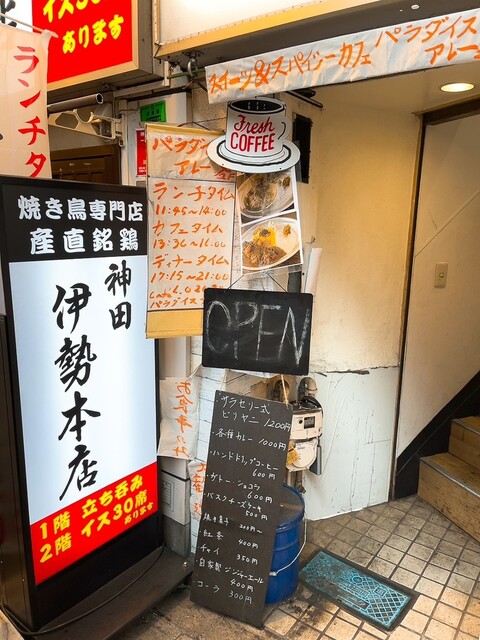 イス30
あります
ランチタ
スイーツ&スパイシーカフェ パラダイス
アレー
Fresh
COFFEE
パラダ
アレー
ランチタイム
11:45〜14:00
カフェタイム
13:30〜16:00
ディナータイム
17:15〜21:00
パラダイス
OPEN
焼き鳥専門店
産直銘鶏
神田
伊勢本店
1階 立ち呑み
2階 イス30席
あります
サラセリー式
ビリヤニ 1200円
・各種カレー 1000円
・ハンドドリップコーヒー
600円
・ガトーショコラ
600円
・バスクチーズケーキ
500円
・焼き菓子 200円〜
・紅茶 400円
・チャイ 350円
・自家製ジンジャーエール
400円
コーラ 300円